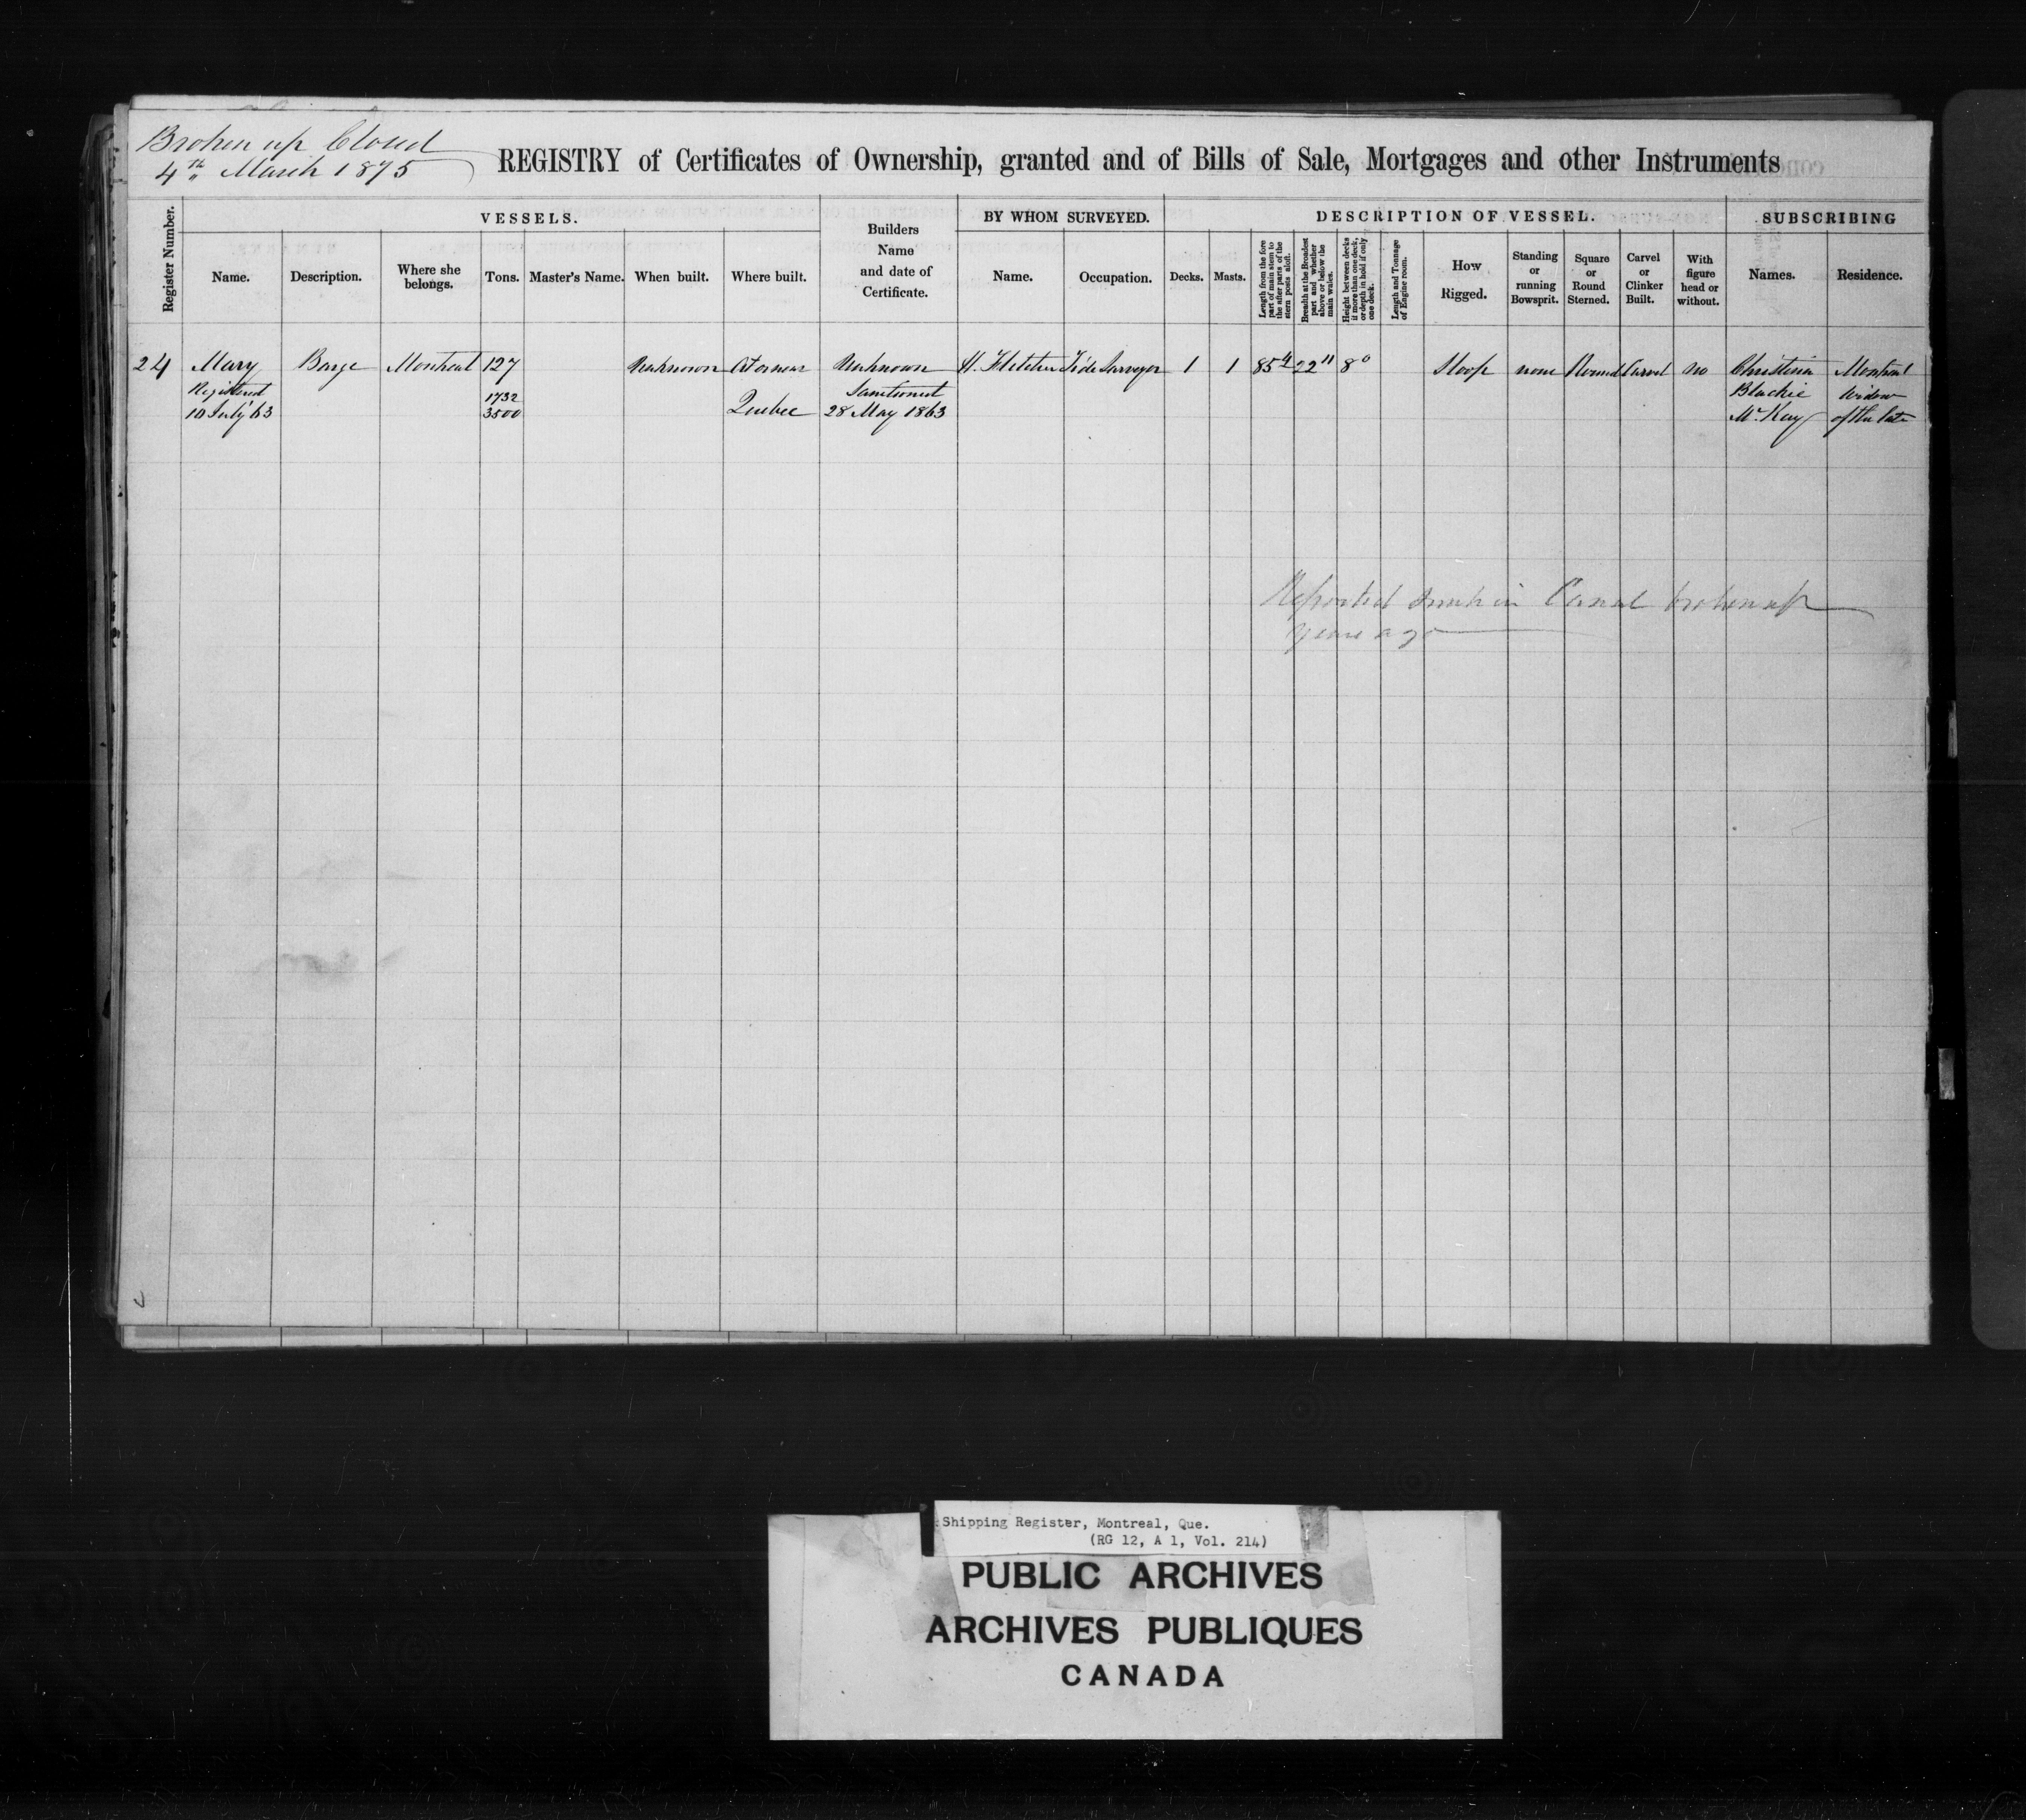 Broken up Closed
4th March 1875
REGISTRY of Certificates of Ownership, granted and of Bills of Sale, Mortgages and other Instruments
Register Number.
VESSELS.
Name.
Description.
Where she belongs.
Tons.
Master's Name.
When built.
Where built.
Builders
Name
and date of
Certificate.
BY WHOM SURVEYED.
Name.
Occupation.
DESCRIPTION OF VESSEL.
Decks.
Masts.
Length from the fore part of main stem to the after parts of the stern posts aloft.
Breadth at the Broadest part and whether above or below the main wales.
Height between decks if more than one deck, or depth in hold if only one deck.
Length and Tonnage of Engine room.
How
Rigged.
Standing
or
running
Bowsprit.
Square
or
Round
Sterned.
Carvel
or
Clinker
Built.
With
figure
head or
without.
SUBSCRIBING
Names.
Residence.
24 Mary Barge Montreal 127 Unknown At or near Unknown H. Fletcher Tide Surveyor 1 1 85 4 22 11 8 0 Sloop none Round Carvel no Christina Montreal
Registered 1732 Sanctioned Blackie Widow
10 July '63 3500 Quebec 28 May 1863 McKay of the late
Reported sunk in Canal broken up
years ago
Shipping Register, Montreal, Que.
(RG 12, A 1, Vol. 214)
PUBLIC ARCHIVES
ARCHIVES PUBLIQUES
CANADA